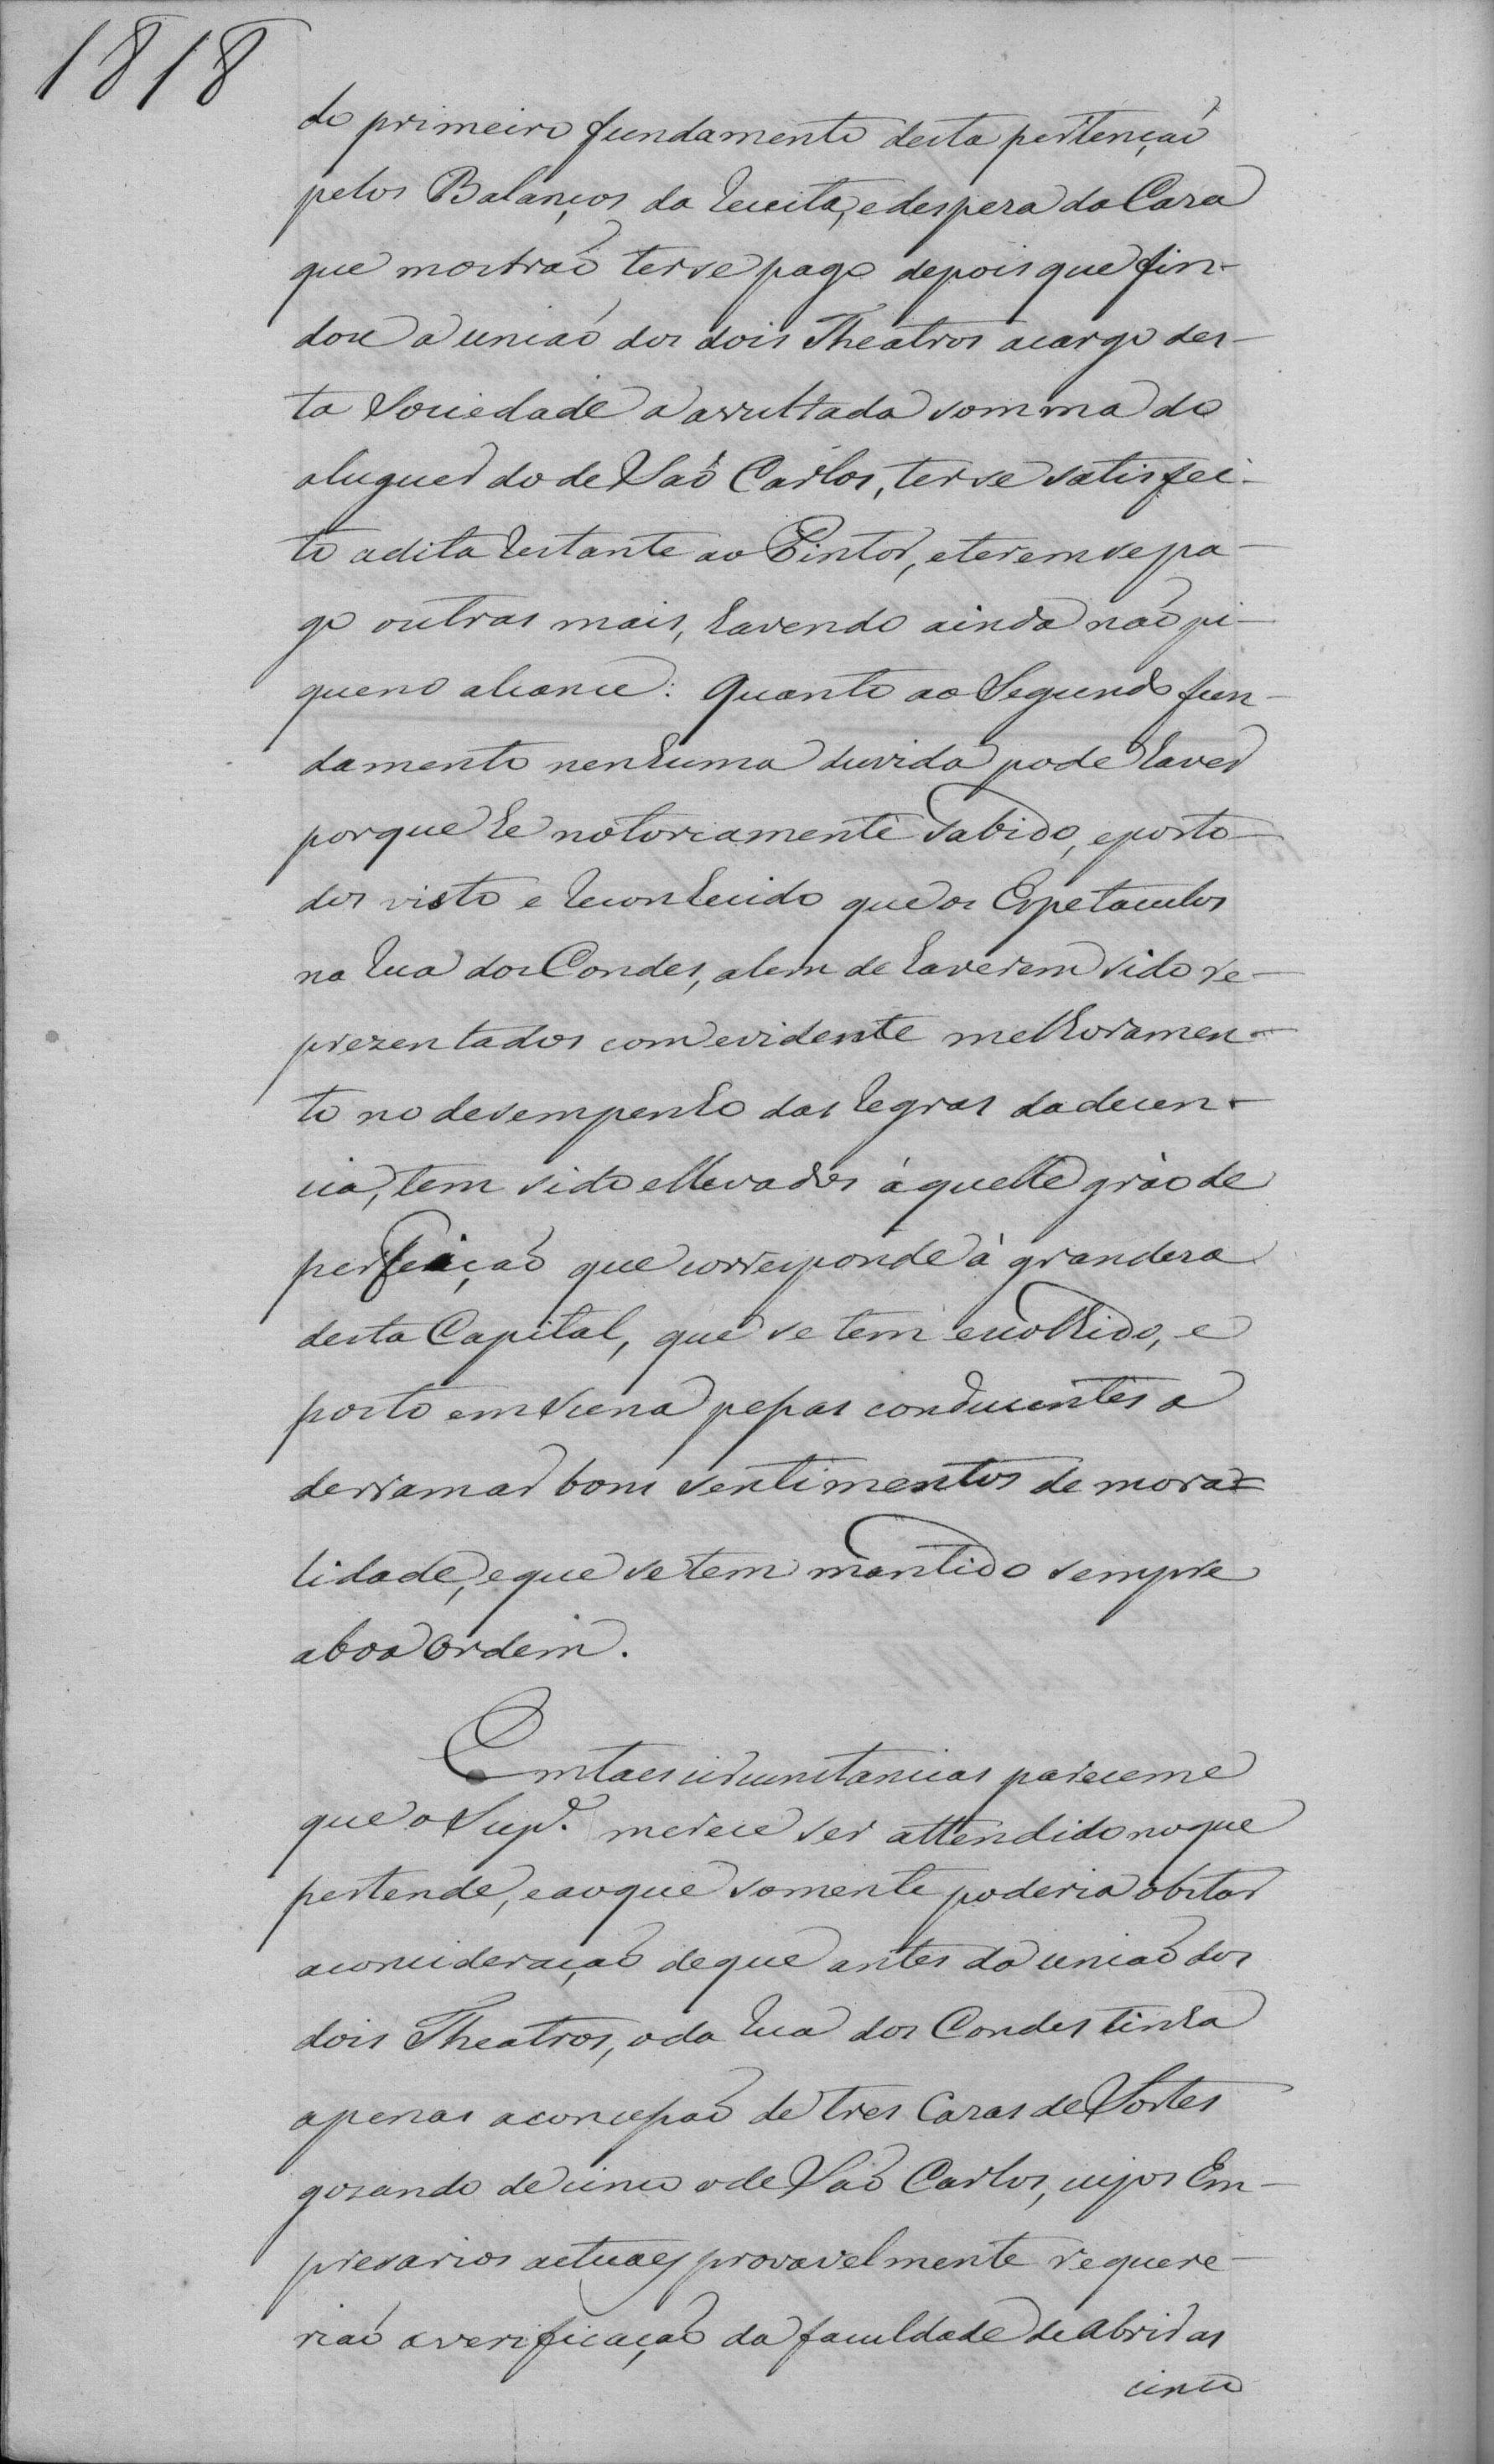 1818
do primeiro fundamento desta pertençaõ
pelos Balanços da receita, e despeza da Caza
que mostraõ terse pago depois que fin-
dou a uniaõ dos dois Theatros a cargo des-
ta Sociedade a avultada somma do
aluguer do de Saõ Carlos, terse satisfei-
to a dita restante ao Pintor, e teremse pa-
go outras mais, havendo ainda naõ pi-
queno alcance: Quanto ao Segundo fun-
damento nenhuma duvida pode haver
porque he notoriamente sabido, e por to-
dos visto e reconhecido que os Espetaculos
na rua dos Condes, alem de haverem sido re-
prezentados com evidente melhoramen-
to no desempenho das regras da decen-
cia, tem sido ellevados áquelle gráo de
perfeiçaõ que corresponde á grandeza
desta Capital, que se tem escolhido, e
posto em scena pessas conducentes a
derramar bons sentimentos de mora=
lidade, e que se tem mantido sempre
a boa ordem.
Em taes circunstancias pareceme
que o Sup.e merece ser attendido no que
pertende, e ao que somente poderia obstar
a concideraçaõ de que antes da uniaõ dos
dois Theatros, o da rua dos Condes tinha
apenas a concessaõ de tres Cazas de Sortes
gozando de cinco o de Saõ Carlos, cujos Em-
presarios actuaes provavelmente requere-
riaõ a verificaçaõ da faculdade de abrir as
cinco